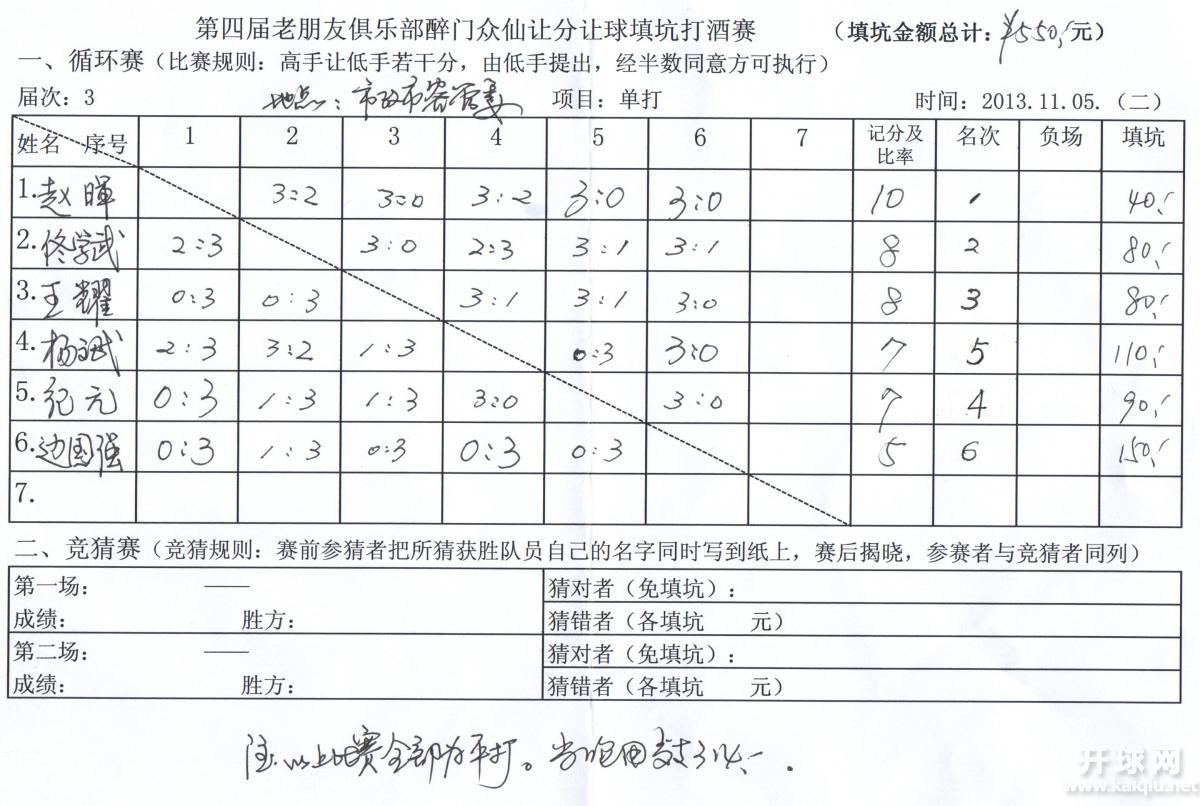 第四届老朋友俱乐部醉门众仙让分让球填坑打酒赛 （填坑金额总计：¥550,-元）
一、循环赛（比赛规则：高手让低手若干分，由低手提出，经半数同意方可执行）
届次：3 地点：市政市容管委 项目：单打 时间：2013.11.05.（二）
姓名 序号 1 2 3 4 5 6 7 记分及比率 名次 负场 填坑
1.赵晖 3:2 3:0 3:2 3:0 3:0 10 1 40,-
2.佟学武 2:3 3:0 2:3 3:1 3:1 8 2 80,-
3.王耀 0:3 0:3 3:1 3:1 3:0 8 3 80,-
4.杨斌 2:3 3:2 1:3 0:3 3:0 7 5 110,-
5.纪元 0:3 1:3 1:3 3:0 3:0 7 4 90,-
6.边国强 0:3 1:3 0:3 0:3 0:3 5 6 150,-
7.
二、竞猜赛（竞猜规则：赛前参猜者把所猜获胜队员自己的名字同时写到纸上，赛后揭晓，参赛者与竞猜者同列）
第一场： —— 猜对者（免填坑）：
成绩： 胜方： 猜错者（各填坑 元）
第二场： —— 猜对者（免填坑）：
成绩： 胜方： 猜错者（各填坑 元）
注：以上比赛全部为平打。
开球网
www.kaiqiu.net